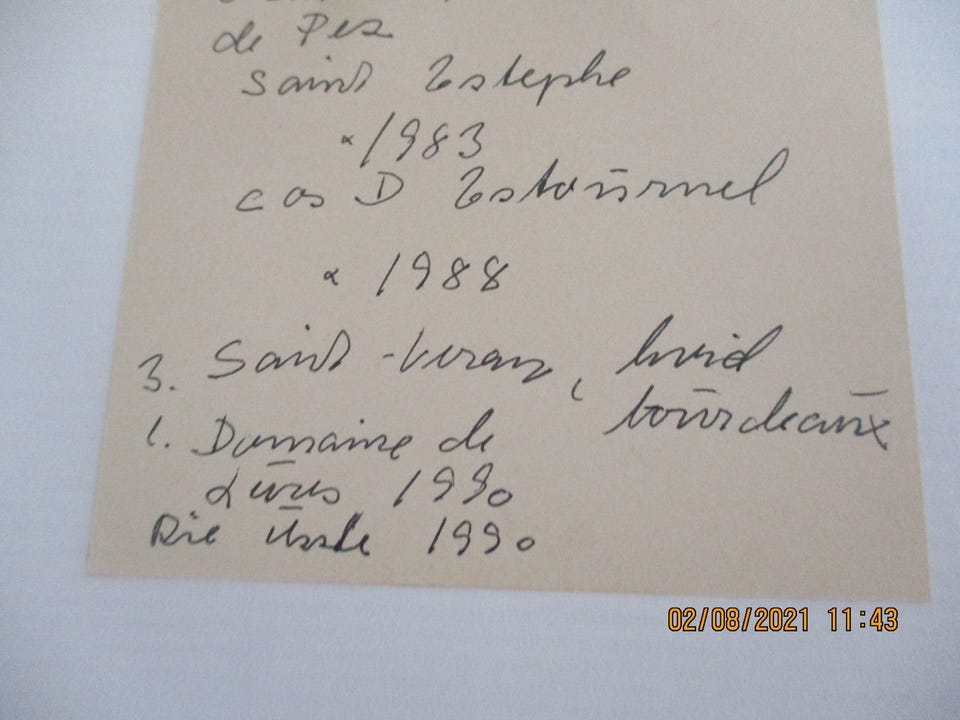 de Pez
Saint Estephe
1983
cos D Estournel
1988
3. Saint-Veran,
bordeaux
1. Domaine de
1990
Die 1990
02/08/2021 11:43